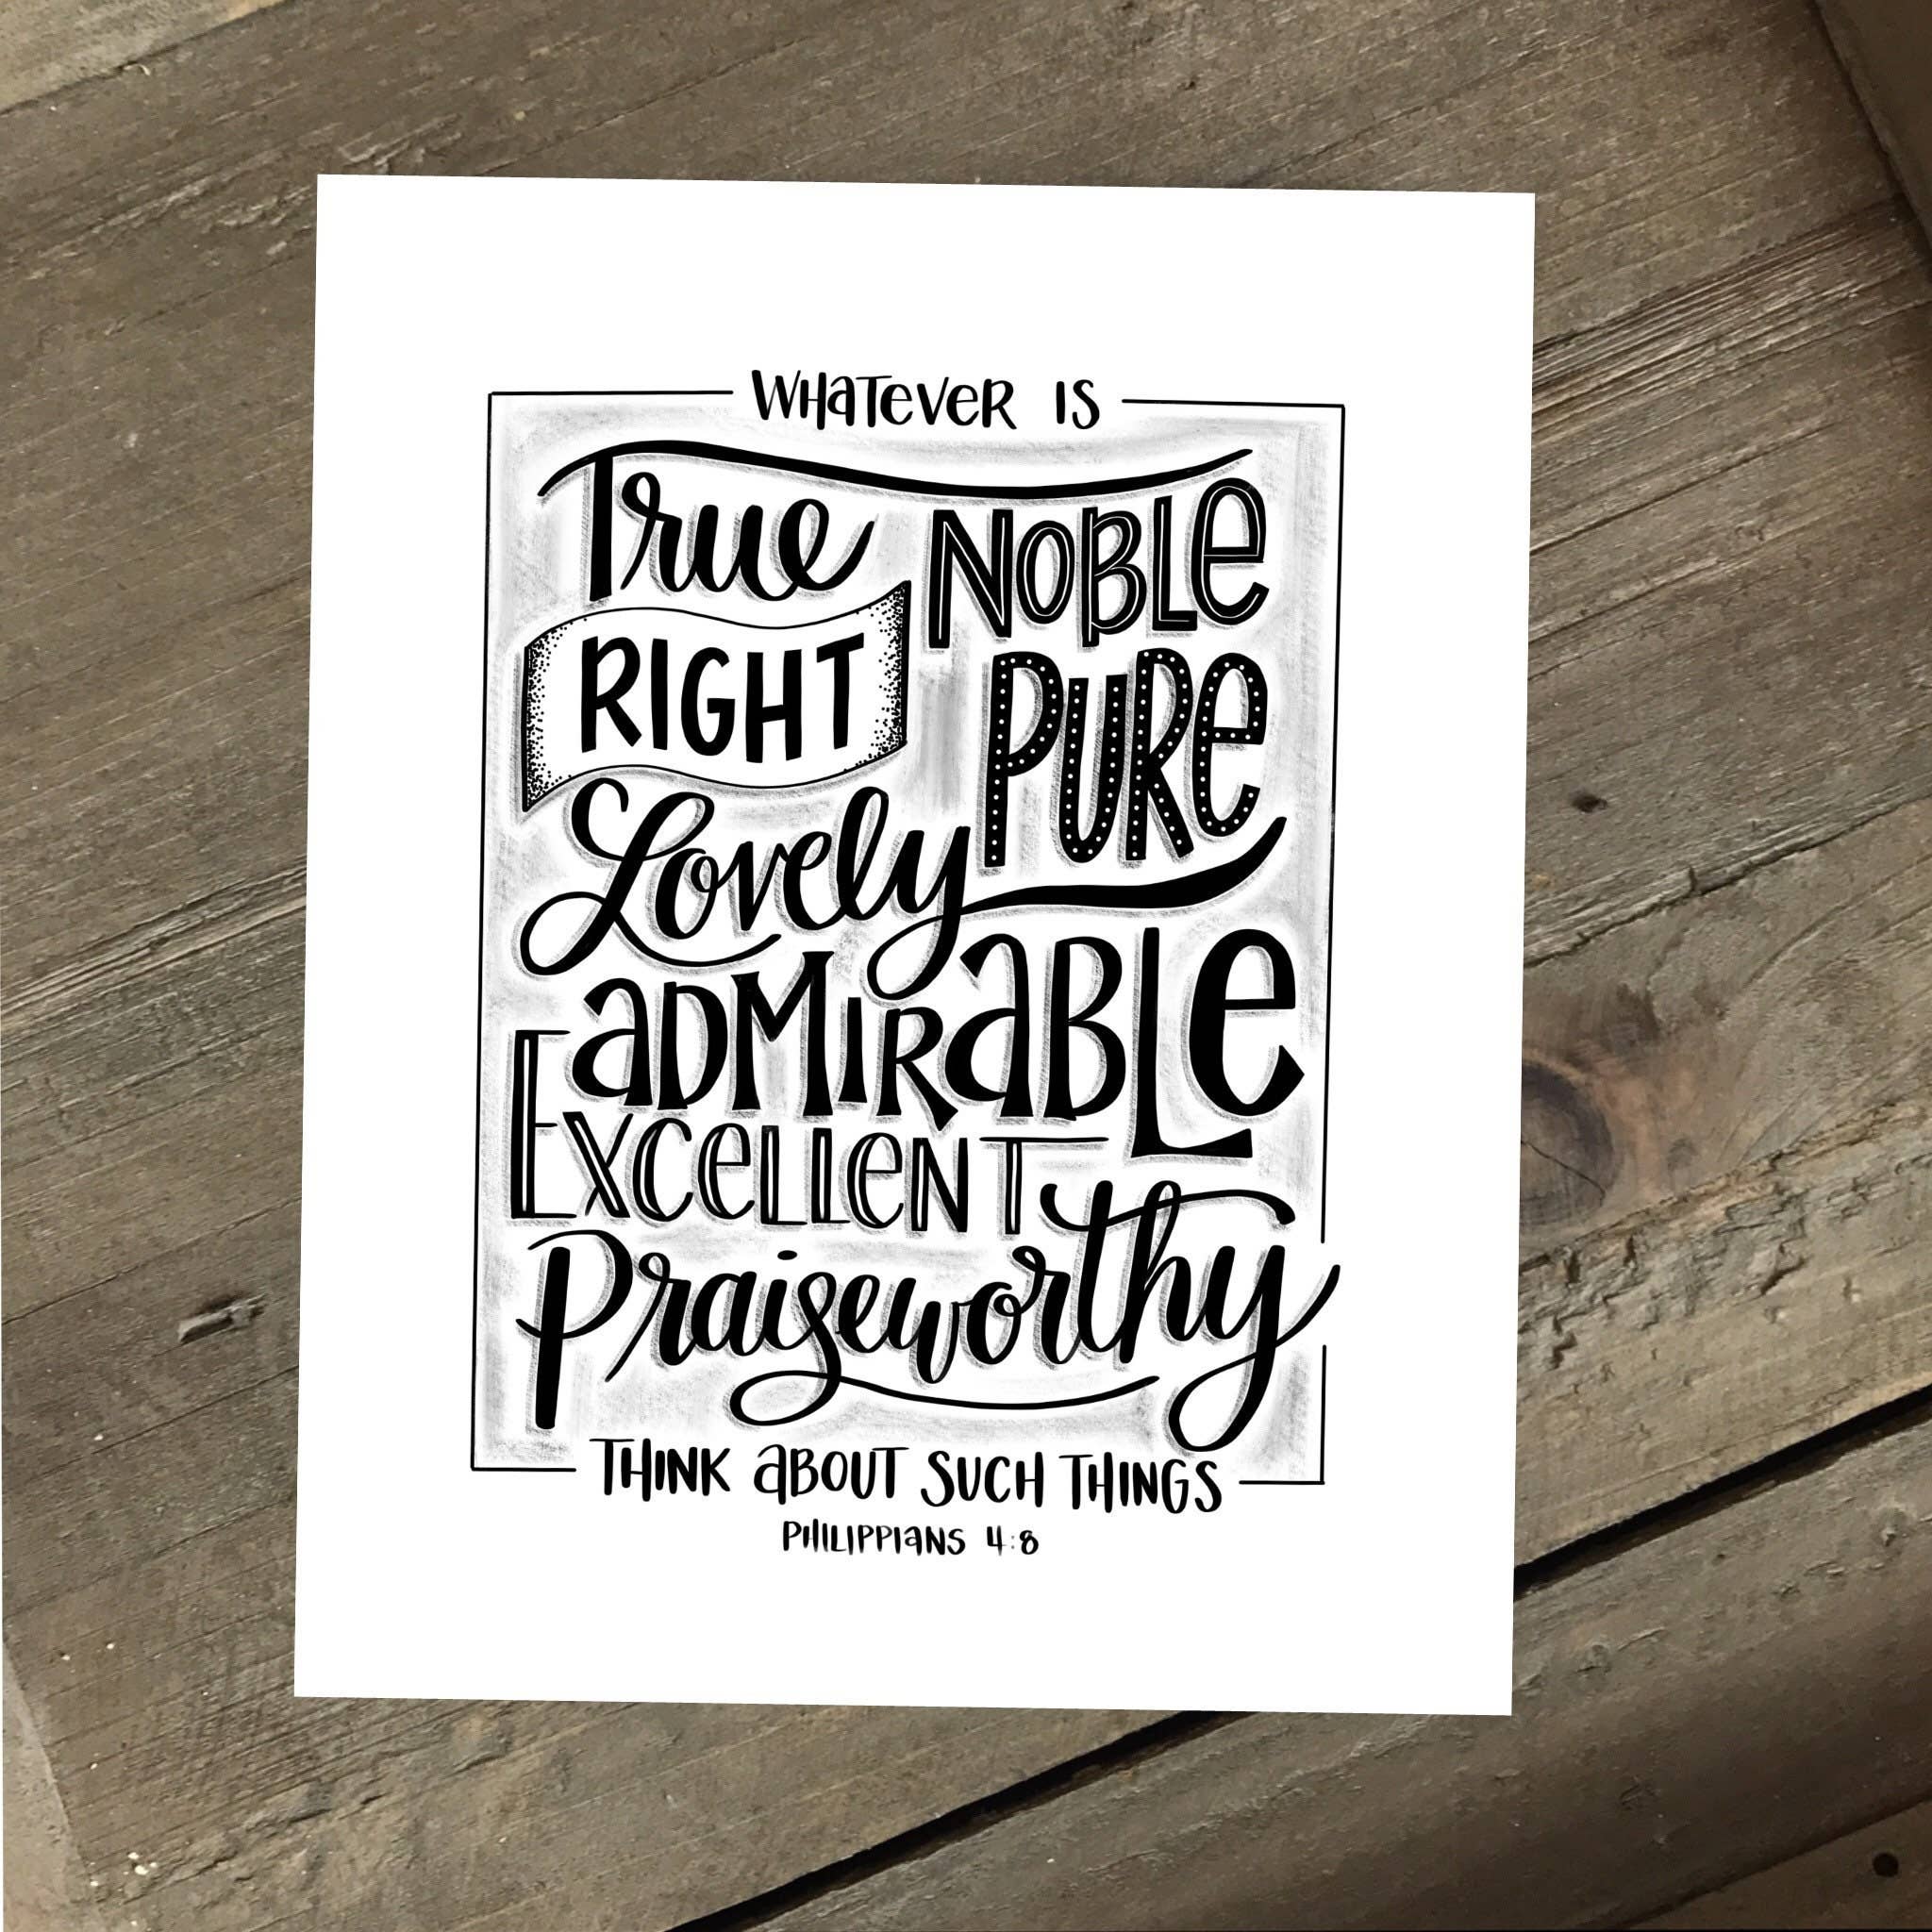 WHATEVER IS
True NOBLE
RIGHT PURE
Lovely
ADMIRABLE
EXCELLENT
Praiseworthy
THINK ABOUT SUCH THINGS
PHILIPPIANS 4:8